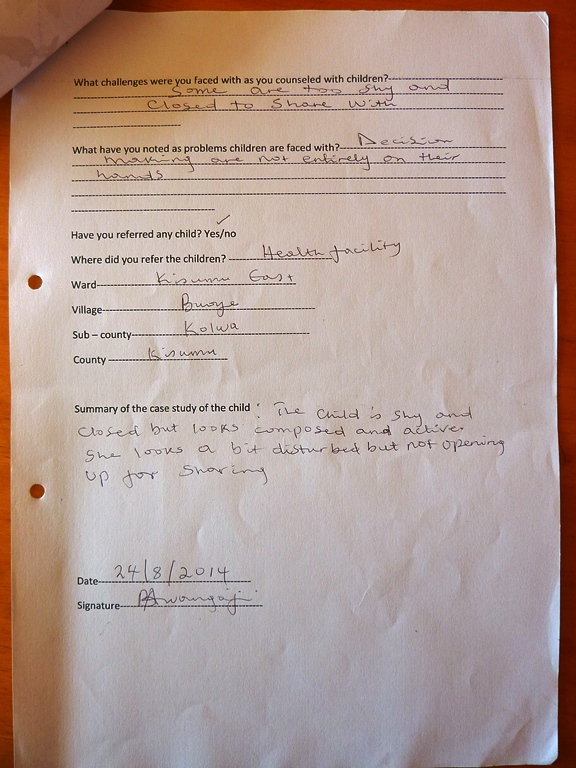 What challenges were you faced with as you counseled with children?
Some are too shy and
Closed to share with
What have you noted as problems children are faced with? Decision
making are not entirely on their
hands
Have you referred any child? Yes/no
Where did you refer the children? Health facility
Ward Kisumu East
Village Buoye
Sub – county Kolwa
County Kisumu
Summary of the case study of the child : The child is shy and
closed but looks composed and active.
She looks a bit disturbed but not opening
up for sharing
Date 24/8/2014
Signature